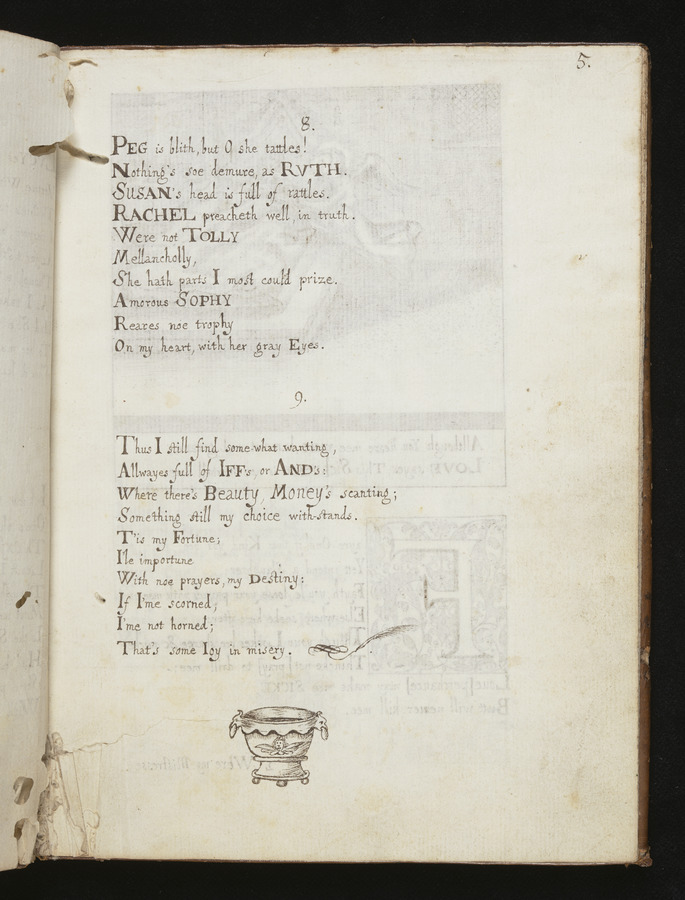 5.
8.
PEG is blith, but O she tattles!
Nothing's soe demure, as RVTH.
SUSAN's head is full of rattles.
RACHEL preacheth well, in truth.
Were not TOLLY
Mellancholly,
She hath parts I most could prize.
Amorous SOPHY
Reares noe trophy
On my heart, with her gray Eyes.
9.
Thus I still find somewhat wanting,
Allwayes full of IFF's, or AND's:
Where there's Beauty, Money's scanting;
Something still my choice with-stands.
T'is my Fortune;
I'le importune
With noe prayers, my Destiny:
If I'me scorned,
I'me not horned;
That's some Ioy in misery.